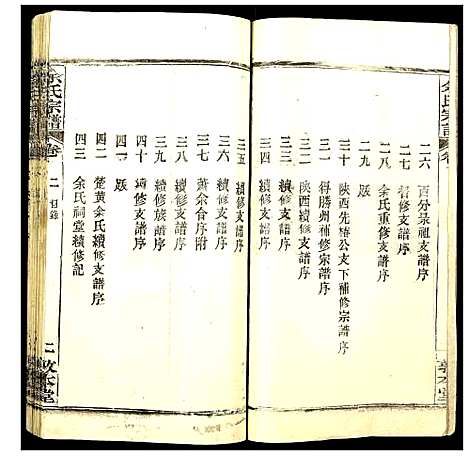 二六 百分彔祖支譜序
二七 耆修支譜序
二八 余氏重修支譜序
二九 跋
三十 陝西先椿公支下補修宗譜序
三一 得勝州補修宗譜序
三二 陝西續修支譜序
三三 續修支譜序
三四 續修支譜序
三五 續修支譜序
三六 續修支譜序
三七 蕭余合序附
三八 續修支譜序
三九 續修族譜序
四十 續修支譜序
四一 跋
四二 楚黄余氏續修支譜序
四三 余氏祠堂續修記
余氏宗譜
卷二 目錄
二 敦本堂